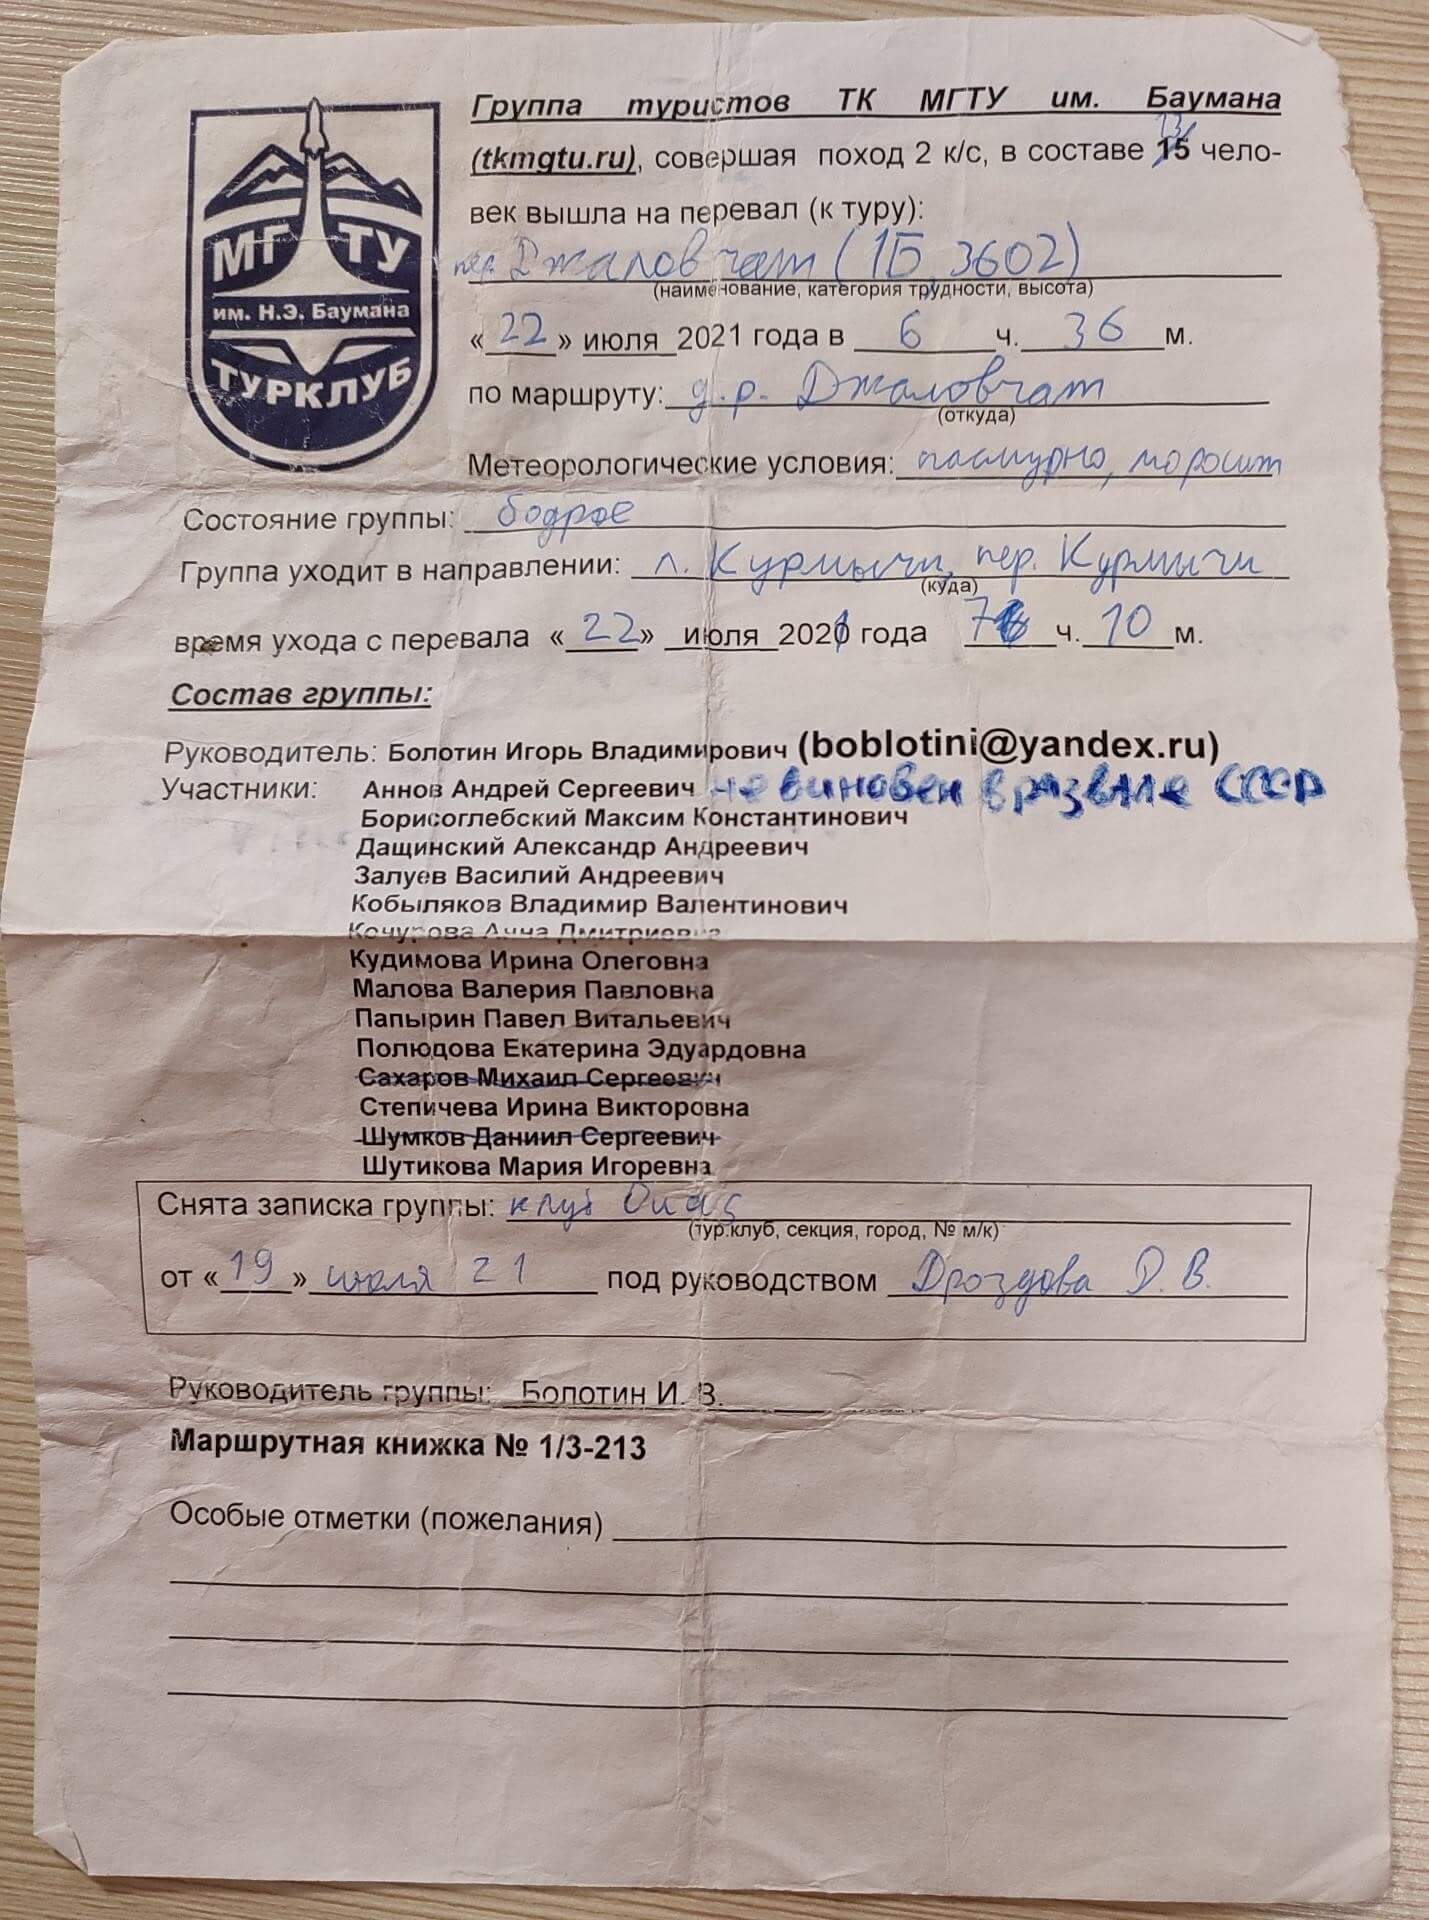 МГ ТУ
им. Н.Э. Баумана
ТУРКЛУБ
Группа туристов ТК МГТУ им. Баумана
13
(tkmgtu.ru), совершая поход 2 к/с, в составе 15 чело-
век вышла на перевал (к туру):
пер. Джаловчат (1Б, 3602)
(наименование, категория трудности, высота)
«22» июля 2021 года в 6 ч. 36 м.
по маршруту: д.р. Джаловчат
(откуда)
Метеорологические условия: пасмурно, моросит
Состояние группы: бодрое
Группа уходит в направлении: л. Курмычи, пер. Курмычи
(куда)
время ухода с перевала «22» июля 2021 года 7 ч. 10 м.
Состав группы:
Руководитель: Болотин Игорь Владимирович (boblotini@yandex.ru)
Участники: Аннов Андрей Сергеевич не виновен в развале СССР
Борисоглебский Максим Константинович
Дащинский Александр Андреевич
Залуев Василий Андреевич
Кобыляков Владимир Валентинович
Кочурова Анна Дмитриевна
Кудимова Ирина Олеговна
Малова Валерия Павловна
Папырин Павел Витальевич
Полюдова Екатерина Эдуардовна
Сахаров Михаил Сергеевич
Степичева Ирина Викторовна
Шумков Даниил Сергеевич
Шутикова Мария Игоревна
Снята записка группы: клуб
(тур.клуб, секция, город, № м/к)
от «19» июля 21 под руководством Дроздова Д. В.
Руководитель группы: Болотин И. В.
Маршрутная книжка № 1/3-213
Особые отметки (пожелания)